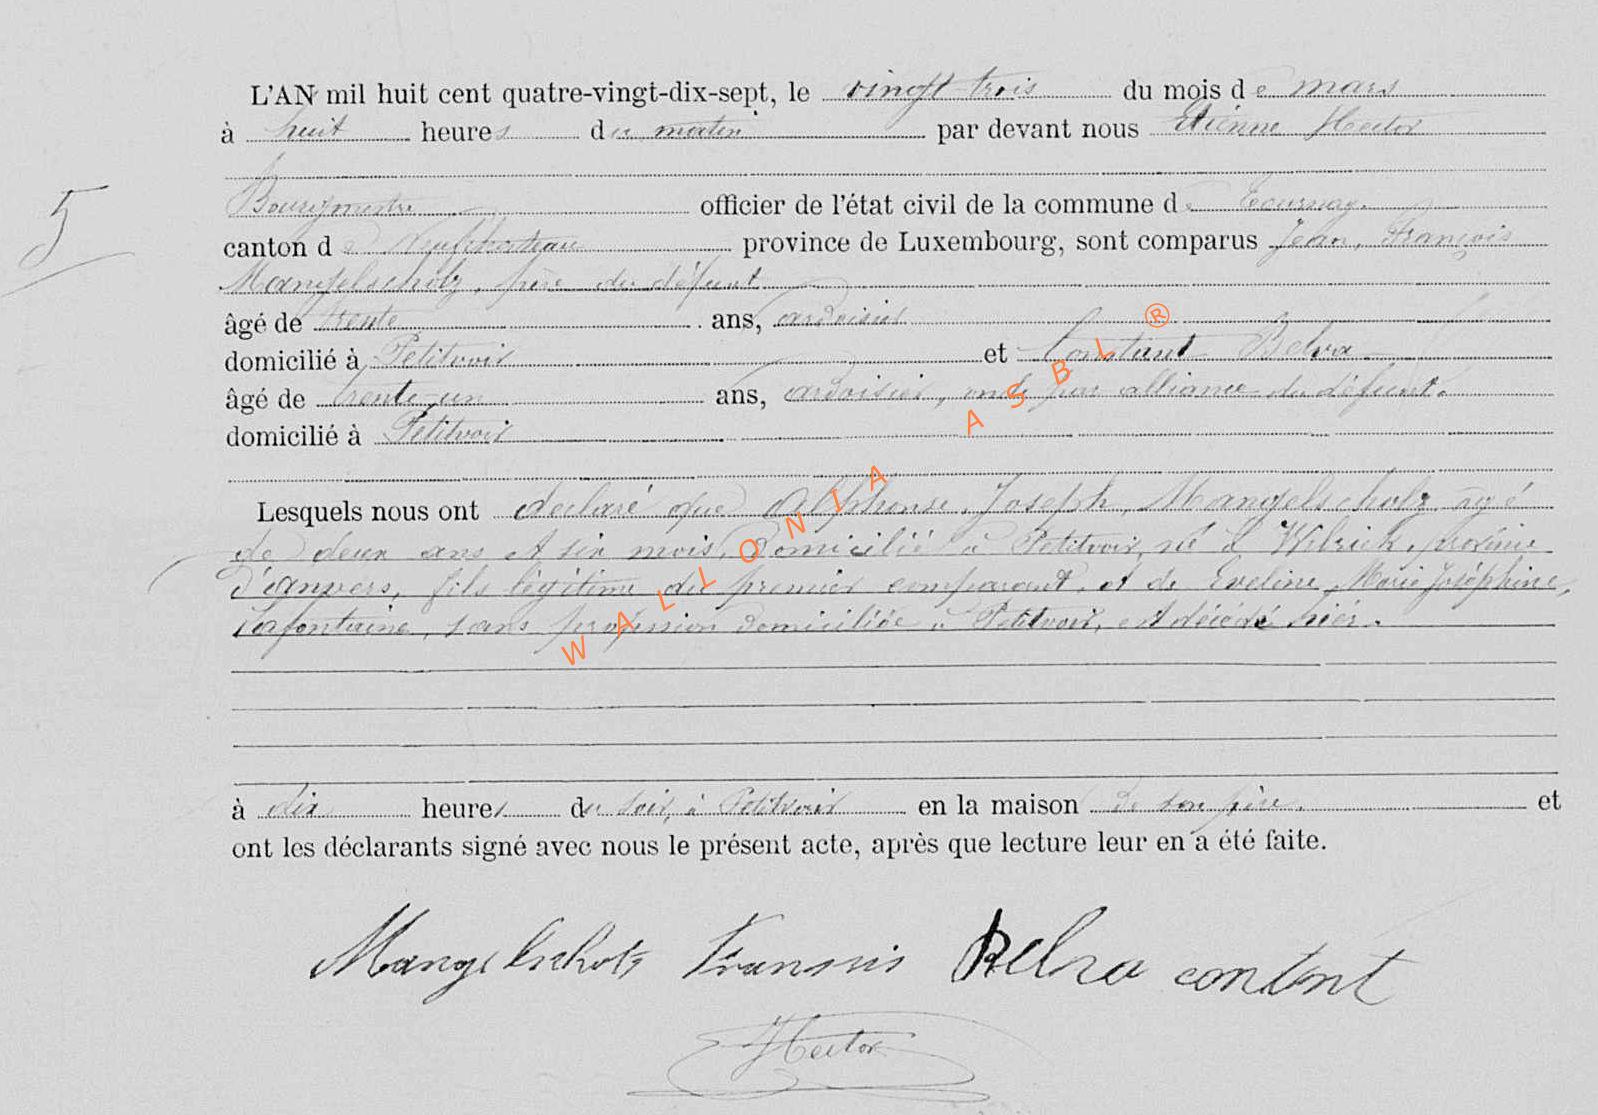 L'AN mil huit cent quatre-vingt-dix-sept, le vingt trois du mois de mars
à huit heures du matin par devant nous Etienne Hector
Bourgmestre officier de l'état civil de la commune de Tournay.
canton de Neufchateau province de Luxembourg, sont comparus Jean, François
Mangelschotz, père du défunt
âgé de trente ans, ardoisier
domicilié à Petitvoir et Constant Belva
âgé de trente-un ans, ardoisier, oncle par alliance du défunt.
domicilié à Petitvoir
5
Lesquels nous ont déclaré que Alphonse, Joseph, Mangelschotz âgé
de deux ans et six mois, domicilié à Petitvoir, né à Wilrick, province
d'anvers, fils légitime du premier comparant, et de Eveline, Marie Joséphine,
Lafontaine, sans profession domiciliée à Petitvoir, est décédé hier.
à dix heures du soir, à Petitvoir en la maison de son père. et
ont les déclarants signé avec nous le présent acte, après que lecture leur en a été faite.
Mangelschotz Fransois Belva contant
Hector
WALLONIA ASBL ®